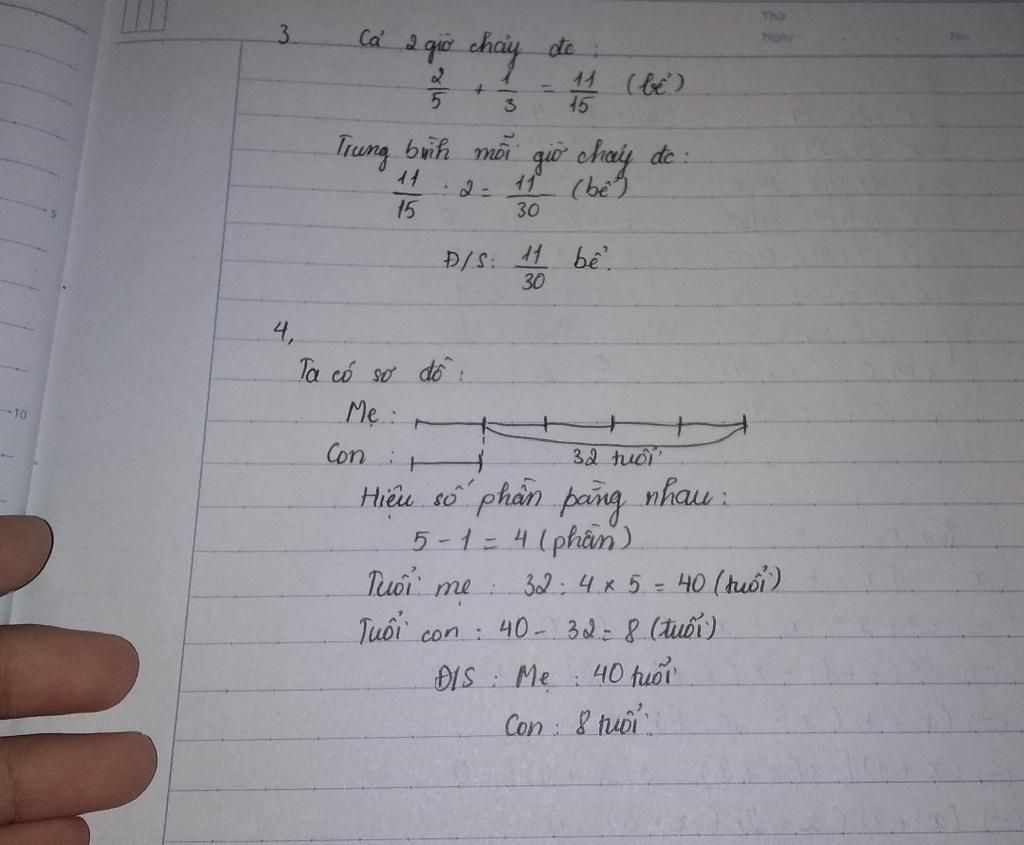 Thứ
Ngày No.
3 Cả 2 giờ chảy đc :
2/5 + 1/3 = 11/15 (bể)
Trung bình mỗi giờ chảy đc :
11/15 : 2 = 11/30 (bể)
Đ/S: 11/30 bể.
4,
Ta có sơ đồ :
Mẹ :
Con : 32 tuổi
Hiệu số phần bằng nhau :
5 - 1 = 4 (phần)
Tuổi mẹ : 32 : 4 x 5 = 40 (tuổi)
Tuổi con : 40 - 32 = 8 (tuổi)
Đ/S : Mẹ : 40 tuổi
Con : 8 tuổi.
5
10